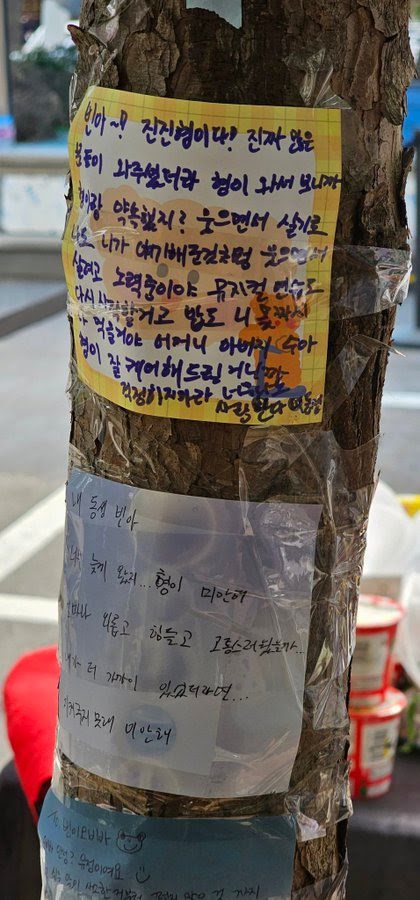 빈아~! 진진형이다! 진짜 많은
분들이 와주셨더라 형이 와서 보니까
형이랑 약속했지? 웃으면서 살기로
나도 니가 얘기해준것처럼 웃으면서
살려고 노력중이야 뮤지컬 연습도
다시 시작할거고 밥도 니 몫까지
다 먹을거야 어머니 아버지 수아
형이 잘 케어해드릴거니깐
걱정하지마라
사랑한다
내 동생 빈아
늦게 왔지... 형이 미안해
얼마나 외롭고 힘들고 고통스러웠을까..
내가 더 가까이 있었더라면...
지켜주지 못해 미안해
To 빈이오빠
안녕? 유정이에요